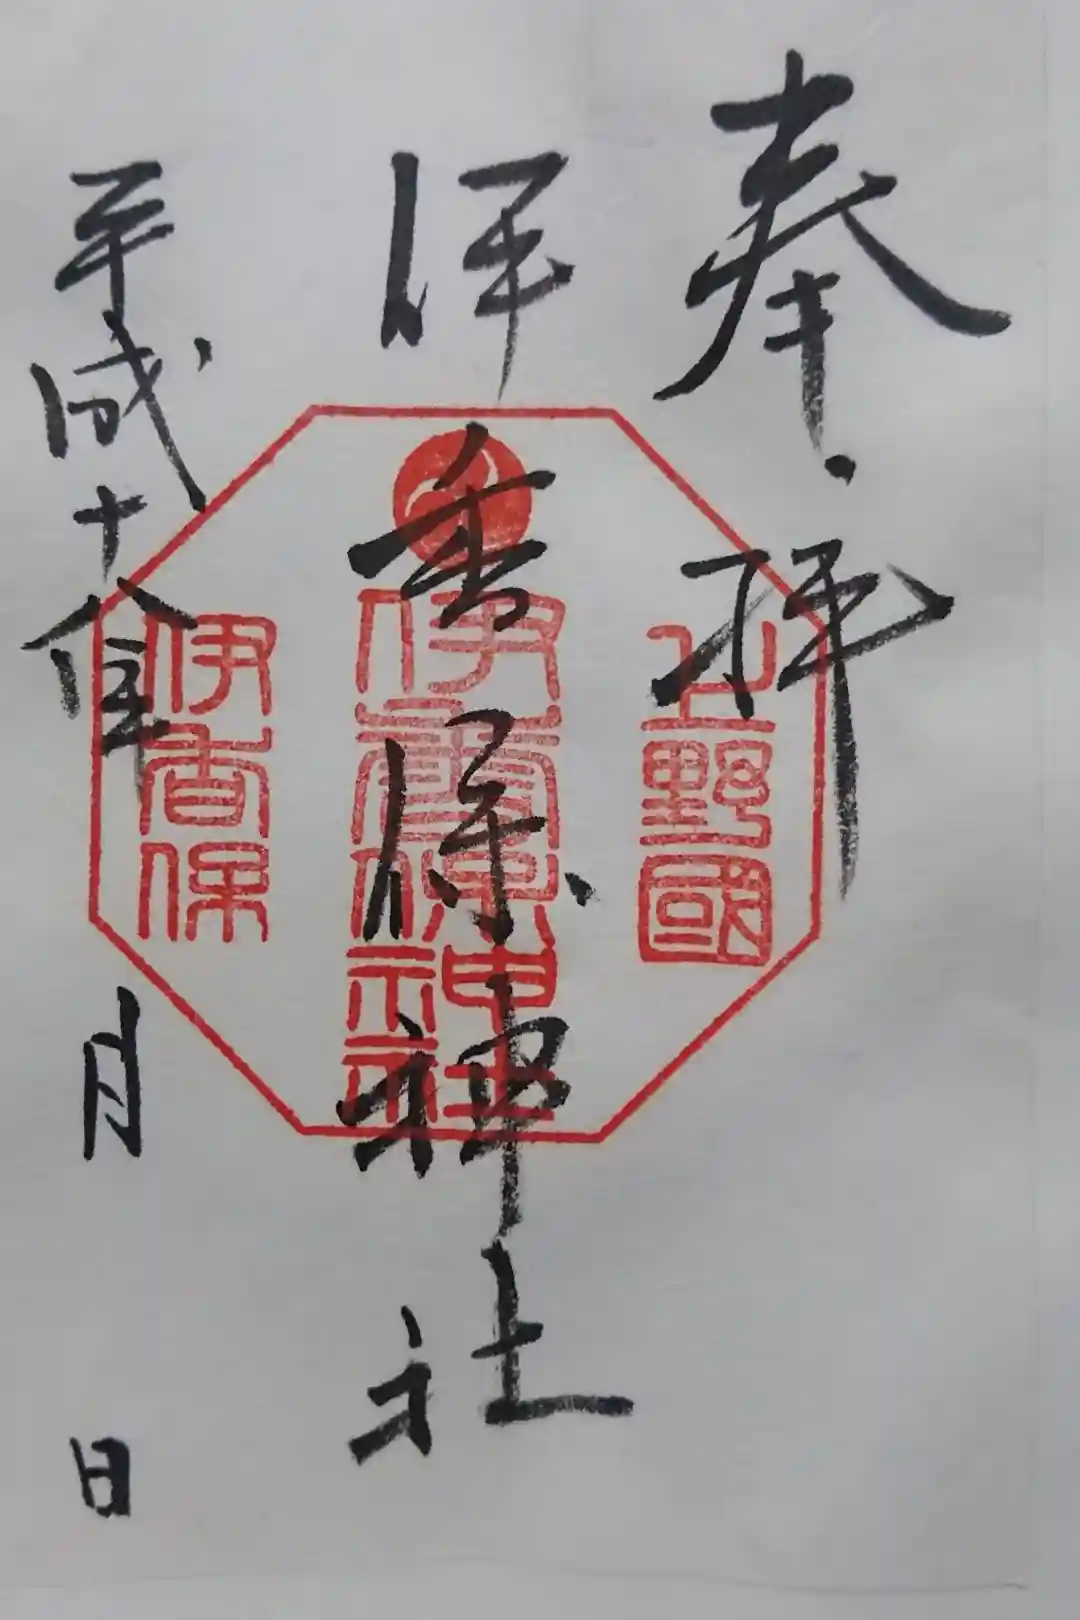 奉拝
上野國
伊香保神社
伊香保神社
伊香保
平成十 年 月 日